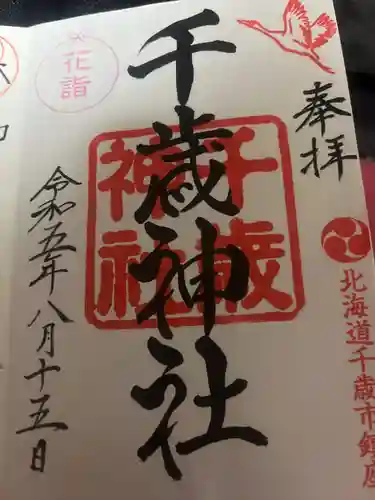 奉拝
北海道千歳市鎮座
千歳神社
千歳
神社
花詣
令和五年八月十五日